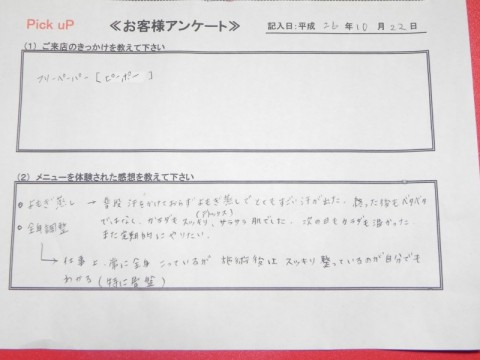 Pick uP
≪お客様アンケート≫
記入日:平成 26 年 10 月 22 日
(1) ご来店のきっかけを教えて下さい
フリーペーパー [ピーポー]
(2) メニューを体験された感想を教えて下さい
よもぎ蒸し → 普段 汗をかけておらずよもぎ蒸しでとてもすごい汗が出た。拭った後もベタベタ
ではなし、カラダもスッキリ、サラサラ肌でした。次の日もカラダも温かった
(デトックス)
全身調整
また定期的にやりたい。
→ 仕事上、常に全身こっているが 施術後はスッキリ整っているのが自分でも
わかる (特に骨盤)